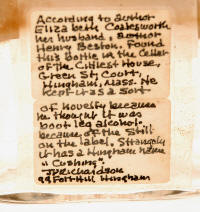 According to author
Elizabeth Coatesworth
her husband, author
Henry Beston, Found
this Bottle in the Cellar
of the Cutless House,
Green St, Court,
Hingham, Mass. He
kept it as a sort
of novelty because
he thought it was
boot leg alcohol.
because of the Still
on the label. Strangely
it has a Hingham name
"Cushing".
JPRichardson
99 Fort Hill Hingham